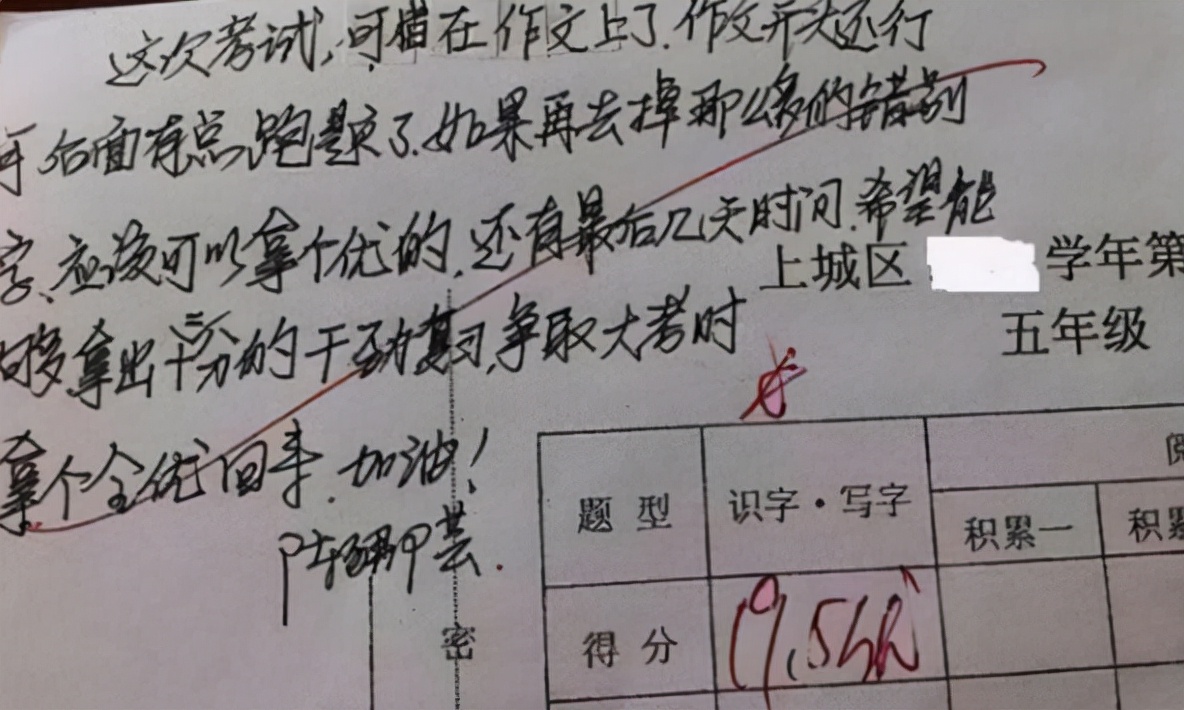 这次考试,可惜在作文上了.作文开头还行
后面有点跑题了.如果再去掉那么多的错别
字、应该可以拿个优的.还有最后几天时间.希望能
够拿出十二分的干劲复习,争取大考时
拿个全优回来.加油!
上城区 学年第
五年级
题 型
识字·写字
积累一
积累
得 分
19.5
密